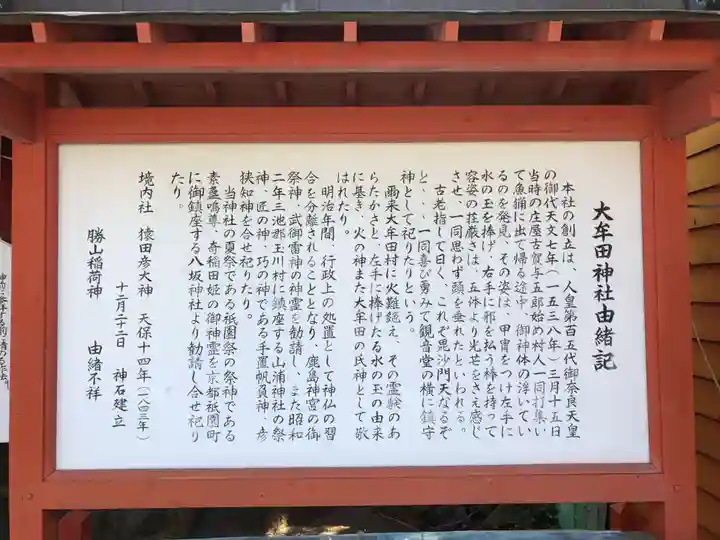 大牟田神社由緒記
本社の創立は、人皇第百五代御奈良天皇
の御代天文七年(一五三八年)三月十五日
当時の庄屋古賀与五郎始め村人一同打集い
て魚捕に出て帰る途中、御神体の浮いてい
るのを発見、その姿は、甲冑をつけ左手に
水の玉を捧げ、右手に邪を払う棒を持って
容姿の荘厳さは、五体より光芒をさえ感じ
させ、一同思わず頭を垂れたといわれる。
古老指して曰く、これぞ毘沙門天なるぞ
と、・・・一同喜び勇みて観音堂の横に鎮守
神として祀りたりという。
爾来大牟田村に火難絶え、その霊験のあ
らたかさと、左手に捧げたる水の玉の由来
に基き、火の神また大牟田の氏神として敬
はれたり。
明治年間、行政上の処置として神仏の習
合を分離されることとなり、鹿島神宮の御
祭神、武御雷神の神霊を勧請し、また昭和
二年三池郡玉川村に鎮座する山浦神社の祭
神、匠の神、巧の神である手置帆負神、彦
狭知神を合せ祀りたり。
当神社の夏祭である祇園祭の祭神である
素盞嗚尊、奇稲田姫の御神霊を京都祇園町
に御鎮座する八坂神社より勧請し合せ祀り
たり。
境内社 猿田彦大神 天保十四年(一八四三年)
十二月二十二日 神石建立
勝山稲荷神 由緒不祥